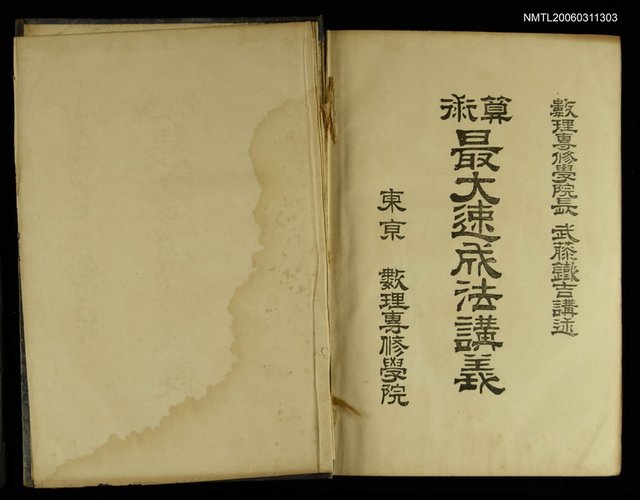 NMTL20060311303
數理專修學院長 武藤鐵吉講述
算術
最大速成法講義
東京 數理專修學院